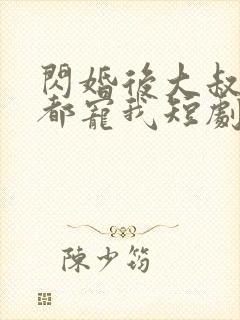 閃婚後大叔
都寵我短劇
陳少筠